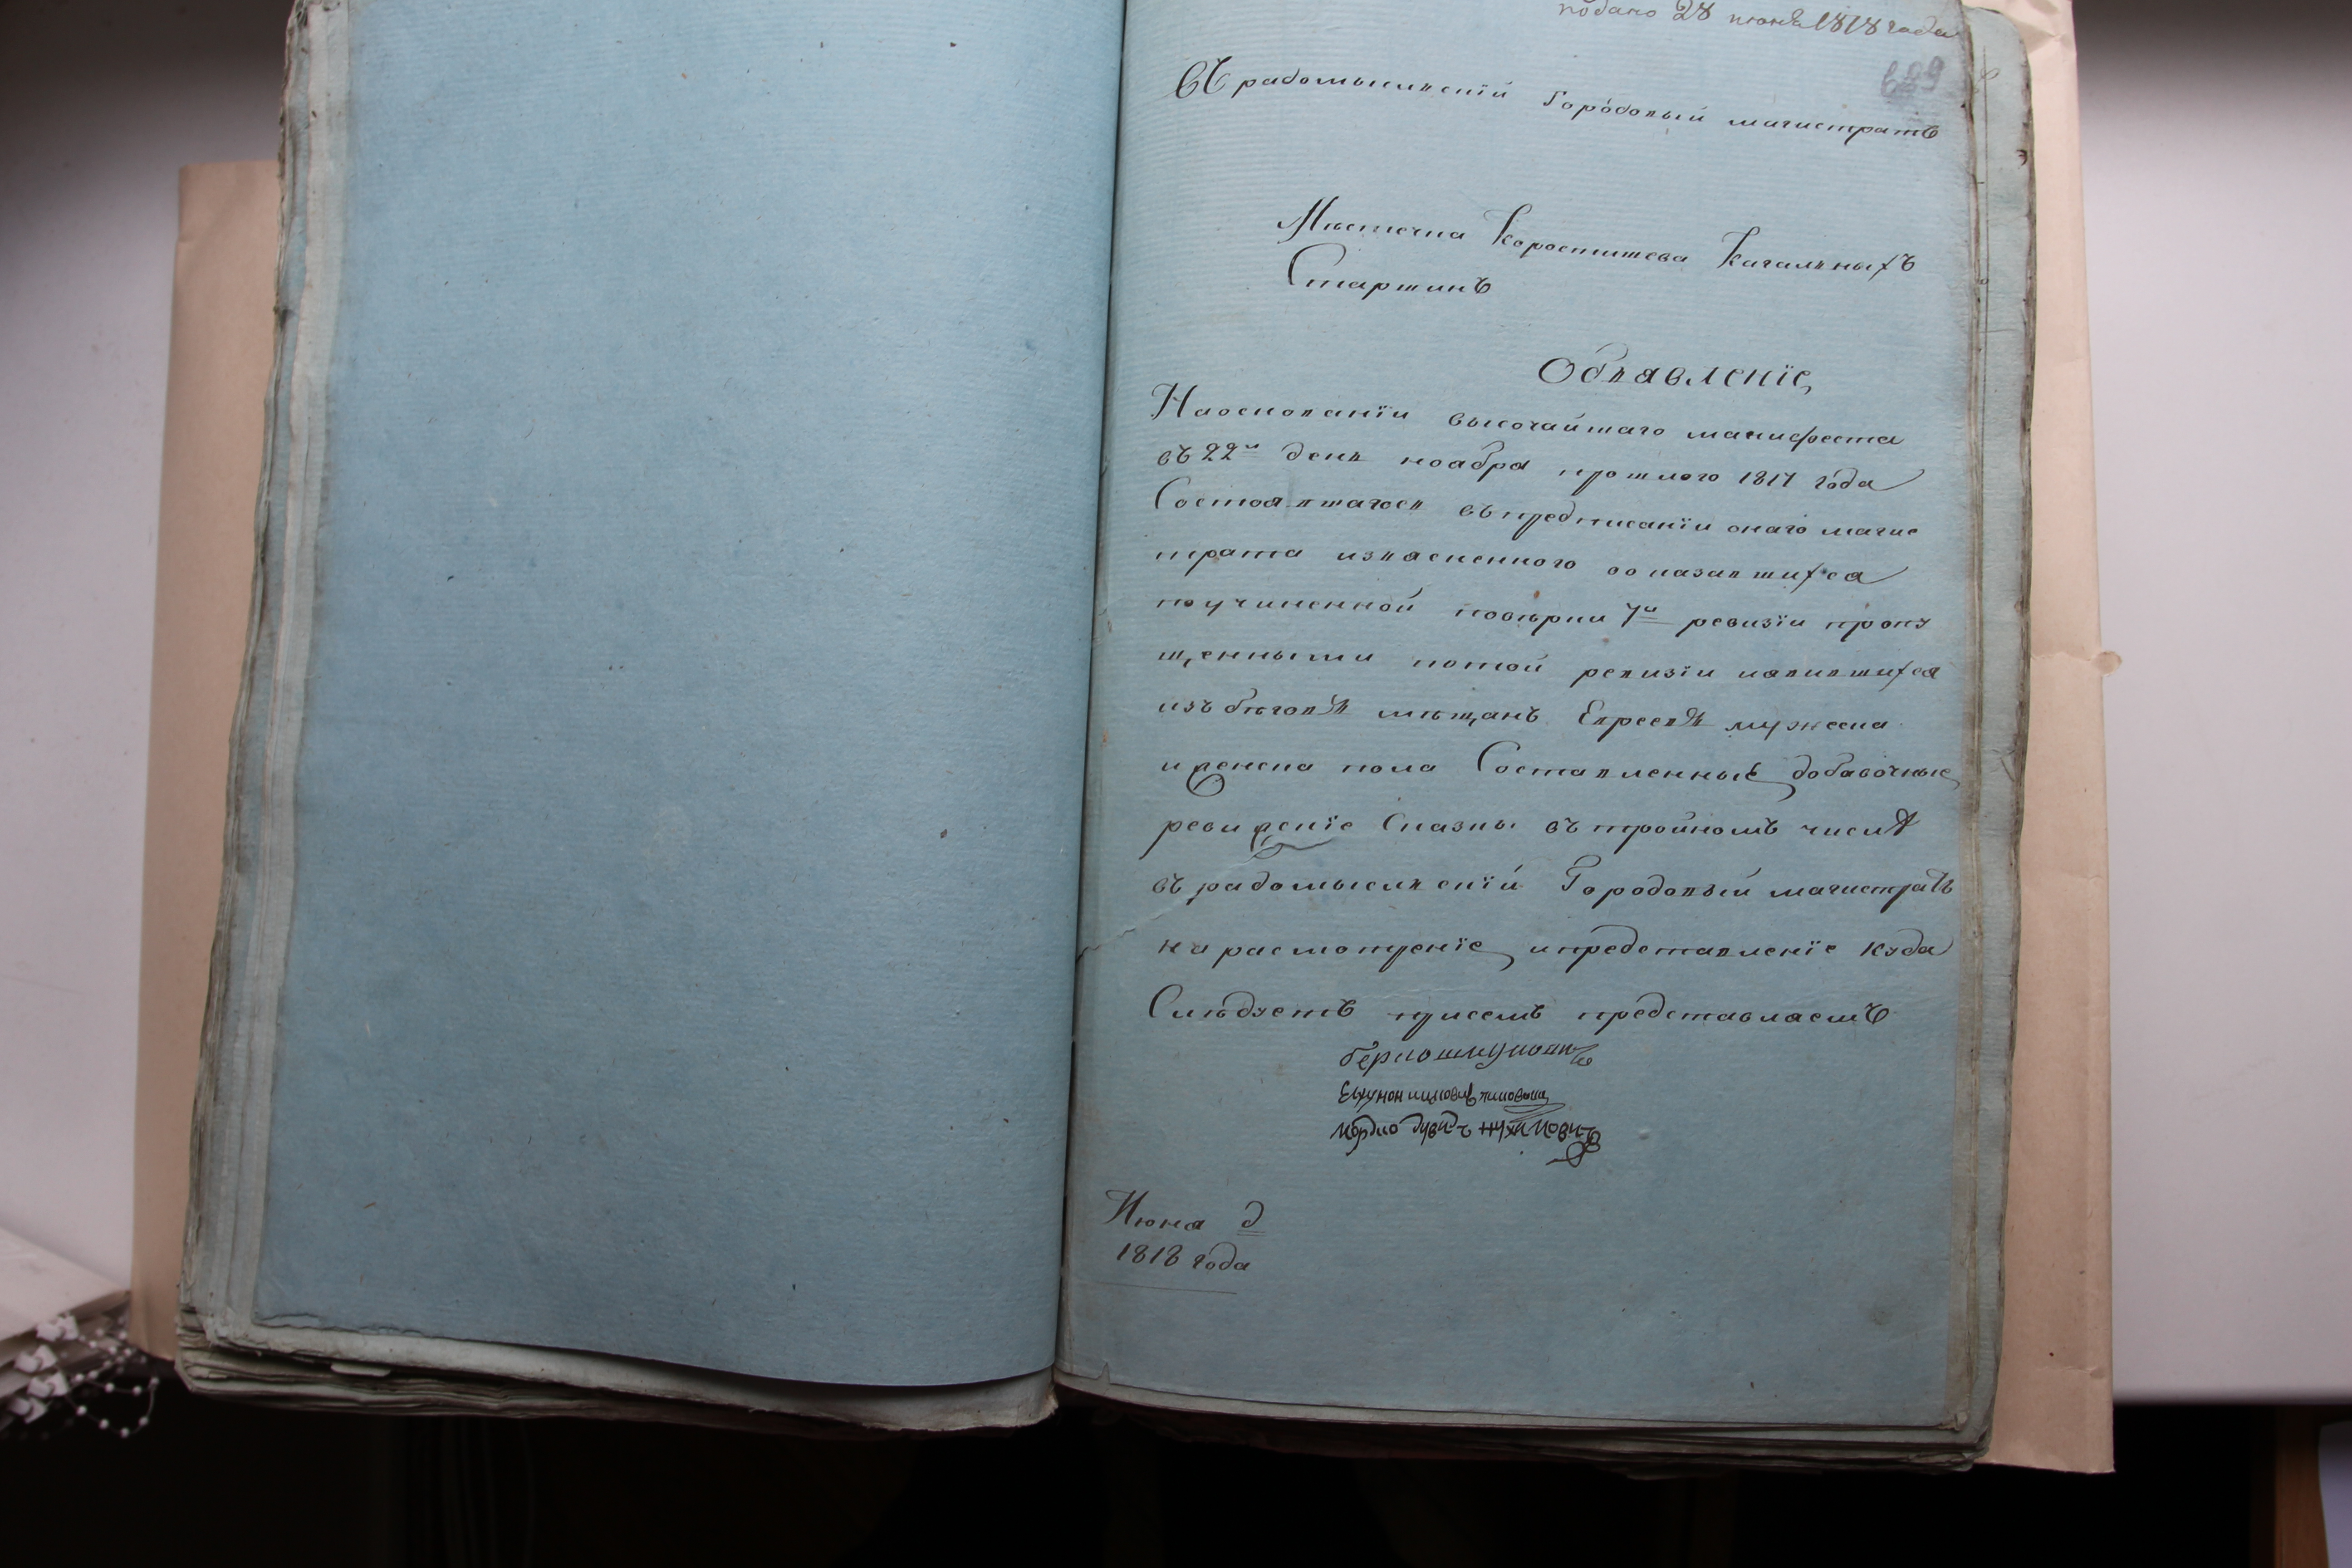 подано 28 июня 1818 года
689
Въ радомысльскій Городовый магистратъ
Мѣстечка Коростишева Кагальныхъ
Старшинъ
Объявленіе
На основаніи высочайшаго манифеста
въ 22й день ноабра прошлого 1817 года
Состоявшагось въ предписаніи онаго магис
трата изъясненного о оказавшихся
по учиненной повѣрки 7й ревизіи пропу
щенными по той ревизіи и явившихся
изъ бѣговъ мѣщанъ Евреевъ мужеска
и женска пола Составленные добавочные
ревижскіе Сказки въ тройномъ числѣ
въ радомысльскій Городовый магистратъ
на расмотреніе и представленіе куда
Слѣдуетъ присемъ представляемъ
Июня д
1818 года